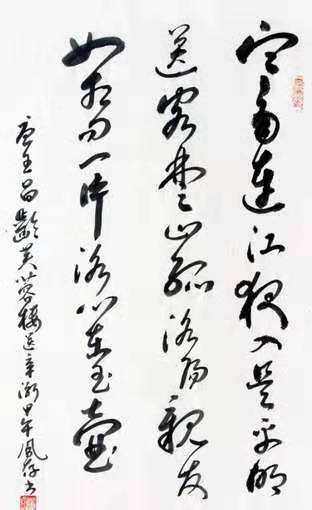 寒雨連江夜入吴平明
送客楚山孤洛陽親友
如相问一片冰心在玉壶
唐王昌齡芙蓉樓送辛漸甲午風存书